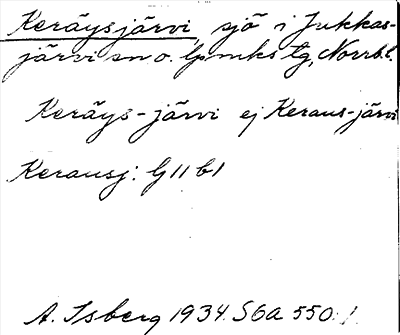 Keräysjärvi, sjö i Jukkas-
järvi sn o. lpmks tg, Norrb. l.
Keräys-järvi ej Keraus-järvi
Kerausj: lj 11 b1
A. Isberg 1934. S6a 550:1